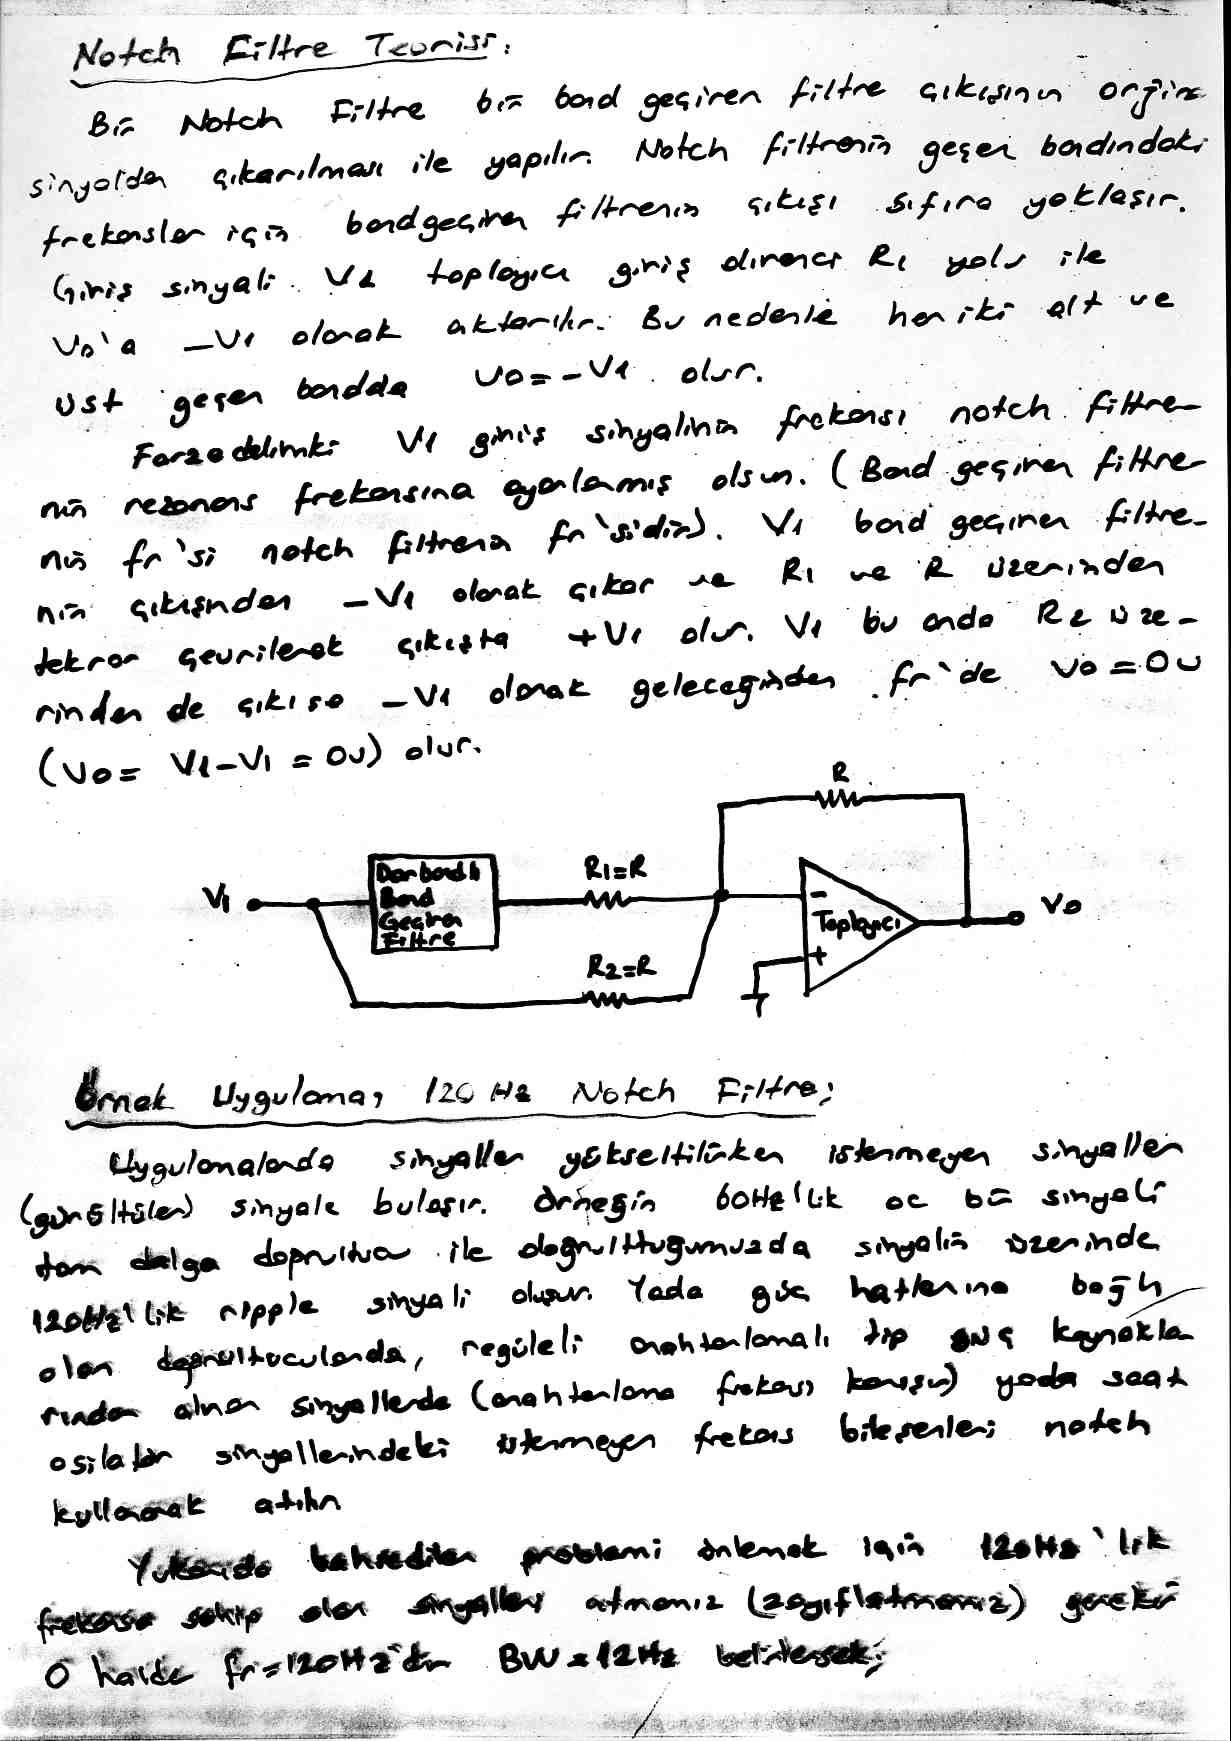 Notch Filtre Teorisi:
Bir Notch Filtre bir band geçiren filtre çıkışının orjinal
sinyalden çıkarılması ile yapılır. Notch filtrenin geçen bandındaki
frekanslar için bandgeçiren filtrenin çıkışı sıfıra yaklaşır.
Giriş sinyali V1 toplayıcı giriş direnci R1 yolu ile
Vo'a -V1 olarak aktarılır. Bu nedenle her iki alt ve
üst geçen bandda Vo=-V1 olur.
Farzedelimki V1 giriş sinyalinin frekansı notch filtre-
nin rezonans frekansına ayarlanmış olsun. (Band geçiren filtre-
nin fr'si notch filtrenin fr'sidir). V1 band geçiren filtre-
nin çıkışından -V1 olarak çıkar ve R1 ve R üzerinden
tekrar çevrilerek çıkışta +V1 olur. V1 bu anda R2 üze-
rinden de çıkışa -V1 olarak geleceğinden fr'de Vo=0v
(Vo= V1-V1 = 0v) olur.
R
V1
Dar bandlı
Band
Geçiren
Filtre
R1=R
R2=R
-
Toplayıcı
+
Vo
Örnek Uygulama, 120 Hz Notch Filtre;
Uygulamalarda sinyaller yükseltilirken istenmeyen sinyaller
(gürültüler) sinyale bulaşır. Örneğin 60Hz'lik ac bir sinyali
tam dalga doğrultucu ile doğrulttuğumuzda sinyalin üzerinde
120Hz'lik ripple sinyali oluşur. Yada güç hatlarına bağlı
olan doğrultucularda, reguleli anahtarlamalı tip güç kaynakla
rından alınan sinyallerde (anahtarlama frekansı karışır) yada saat
osilatör sinyallerindeki istenmeyen frekans bileşenleri notch
kullanarak atılır
Yukarıda bahsedilen problemi önlemek için 120Hz'lik
frekansa sahip olan sinyalleri atmamız (zayıflatmamız) gerekir
O halde fr=120Hz'dir BW=12Hz belirlersek;